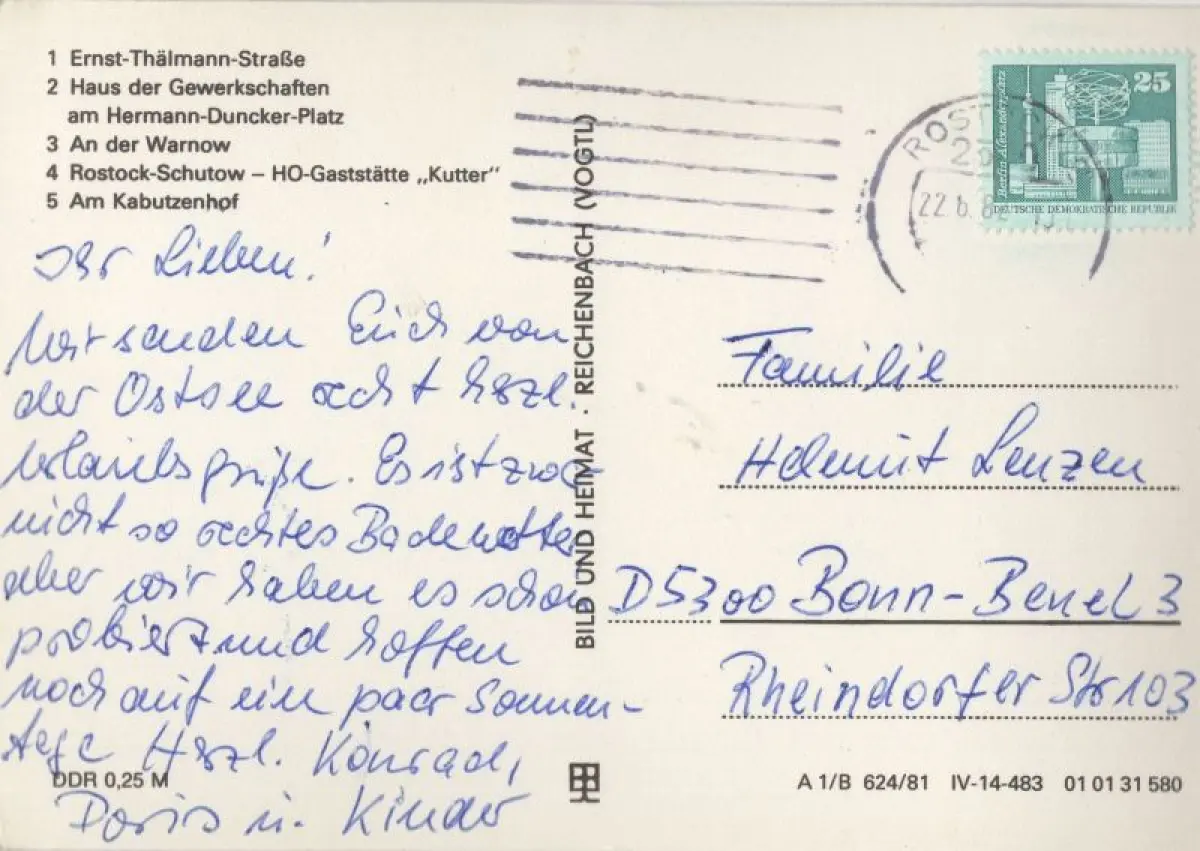 1 Ernst-Thälmann-Straße
2 Haus der Gewerkschaften
am Hermann-Duncker-Platz
3 An der Warnow
4 Rostock-Schutow – HO-Gaststätte „Kutter“
5 Am Kabutzenhof
Ihr Lieben!
Wir senden Euch von
der Ostsee recht herzl.
Urlaubsgrüße. Es ist zwar
nicht so rechtes Badewetter
aber wir haben es schon
probiert und hoffen
noch auf ein paar Sonnen-
tage Herzl. Konrad,
Doris u. Kinder
DDR 0,25 M
BILD UND HEIMAT · REICHENBACH (VOGTL)
25
Berlin-Alexanderplatz
DEUTSCHE DEMOKRATISCHE REPUBLIK
22.6.82
Familie
Helmut Lenzen
D5300 Bonn-Beuel 3
Rheindorfer Str 103
A 1/B 624/81 IV-14-483 01 01 31 580